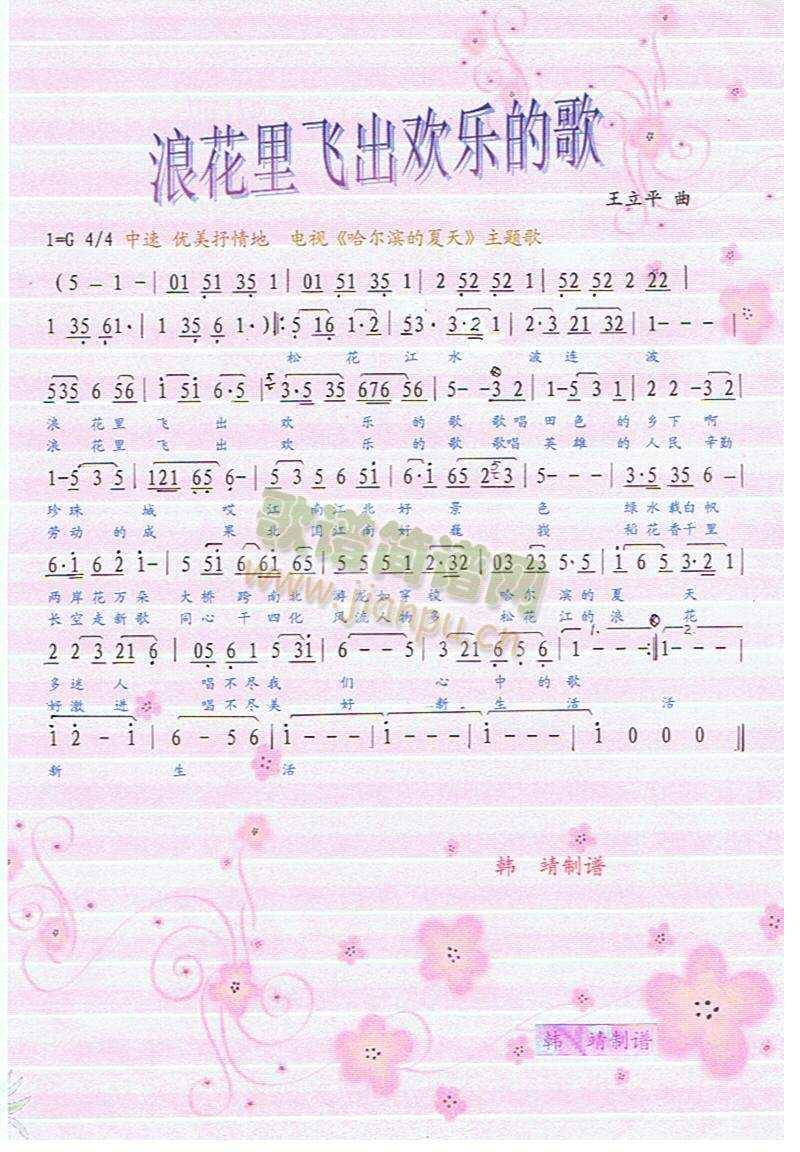 浪花里飞出欢乐的歌
王立平 曲
1=G 4/4 中速 优美抒情地 电视《哈尔滨的夏天》主题歌
(5 - 1 - | 01 51 35 1 | 01 51 35 1 | 2 52 52 1 | 52 52 2 22 |
1 35 61· | 1 35 6 1· )‖: 5 16 1·2 | 53· 3·2 1 | 2·3 21 32 | 1 - - - |
松 花 江 水 波 连 波
535 6 56 | i 5i 6·5 | 3·5 35 676 56 | 5 - -3 2 | 1 - 5 3 1 | 2 2 -3 2 |
浪 花 里 飞 出 欢 乐 的 歌 歌 唱 田 色 的 乡 下 啊
浪 花 里 飞 出 欢 乐 的 歌 歌唱 英 雄 的 人 民 辛勤
1 - 5 3 5 | 121 65 6 - | 5 3 5 6 5i | 6·i 65 253 | 5 - - - | 3·5 35 6 - |
珍 珠 城 哎 江 南 江 北 好 景 色 绿 水 载 白 帆
劳 动 的 成 果 北 国 江 南 好 巍 峩 稻 花 香 千 里
6·i 62 i - | 5 5i 6 6i 65 | 5 5 5 1 2·32 | 03 23 5·5 | i 6 5 3·2 1 |
两 岸 花 万 朵 大 桥 跨 南 北 游 龙 如 穿 梭 哈 尔 滨 的 夏 天
长 空 走 新 歌 同 心 干 四 化 风 流 人 物 多 松 花 江 的 浪 花
2 2 3 21 6 | 05 6 1 5 3i | 6 - - 5 | 3 21 6 5 6 | 1 - - - :‖ 1 - - - |
1. 2.
多 迷 人 唱 不 尽 我 们 心 中 的 歌
好 激 进 唱 不 尽 美 好 新 生 活 活
i 2 - i | 6 - 5 6 | i - - - | i - - - | i - - - | i 0 0 0 ‖
新 生 活
韩 靖制谱
韩 靖制谱
歌谱简谱网
www.jianpu.cn